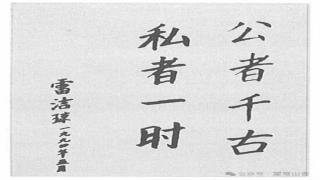 公者千古
私者一时
雷洁琼一九九四年五月
公众号